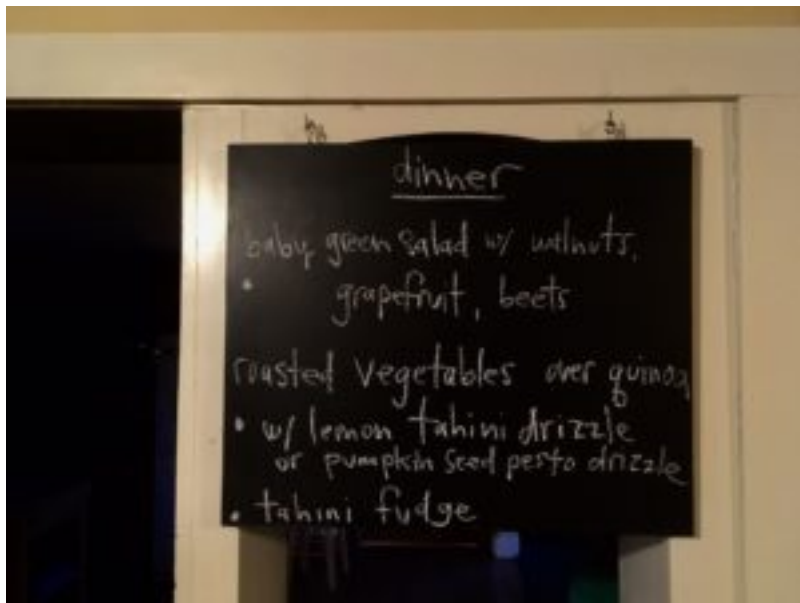 dinner
baby green salad w/ walnuts,
• grapefruit, beets
roasted vegetables over quinoa
• w/ lemon tahini drizzle
or pumpkin seed pesto drizzle
• tahini fudge